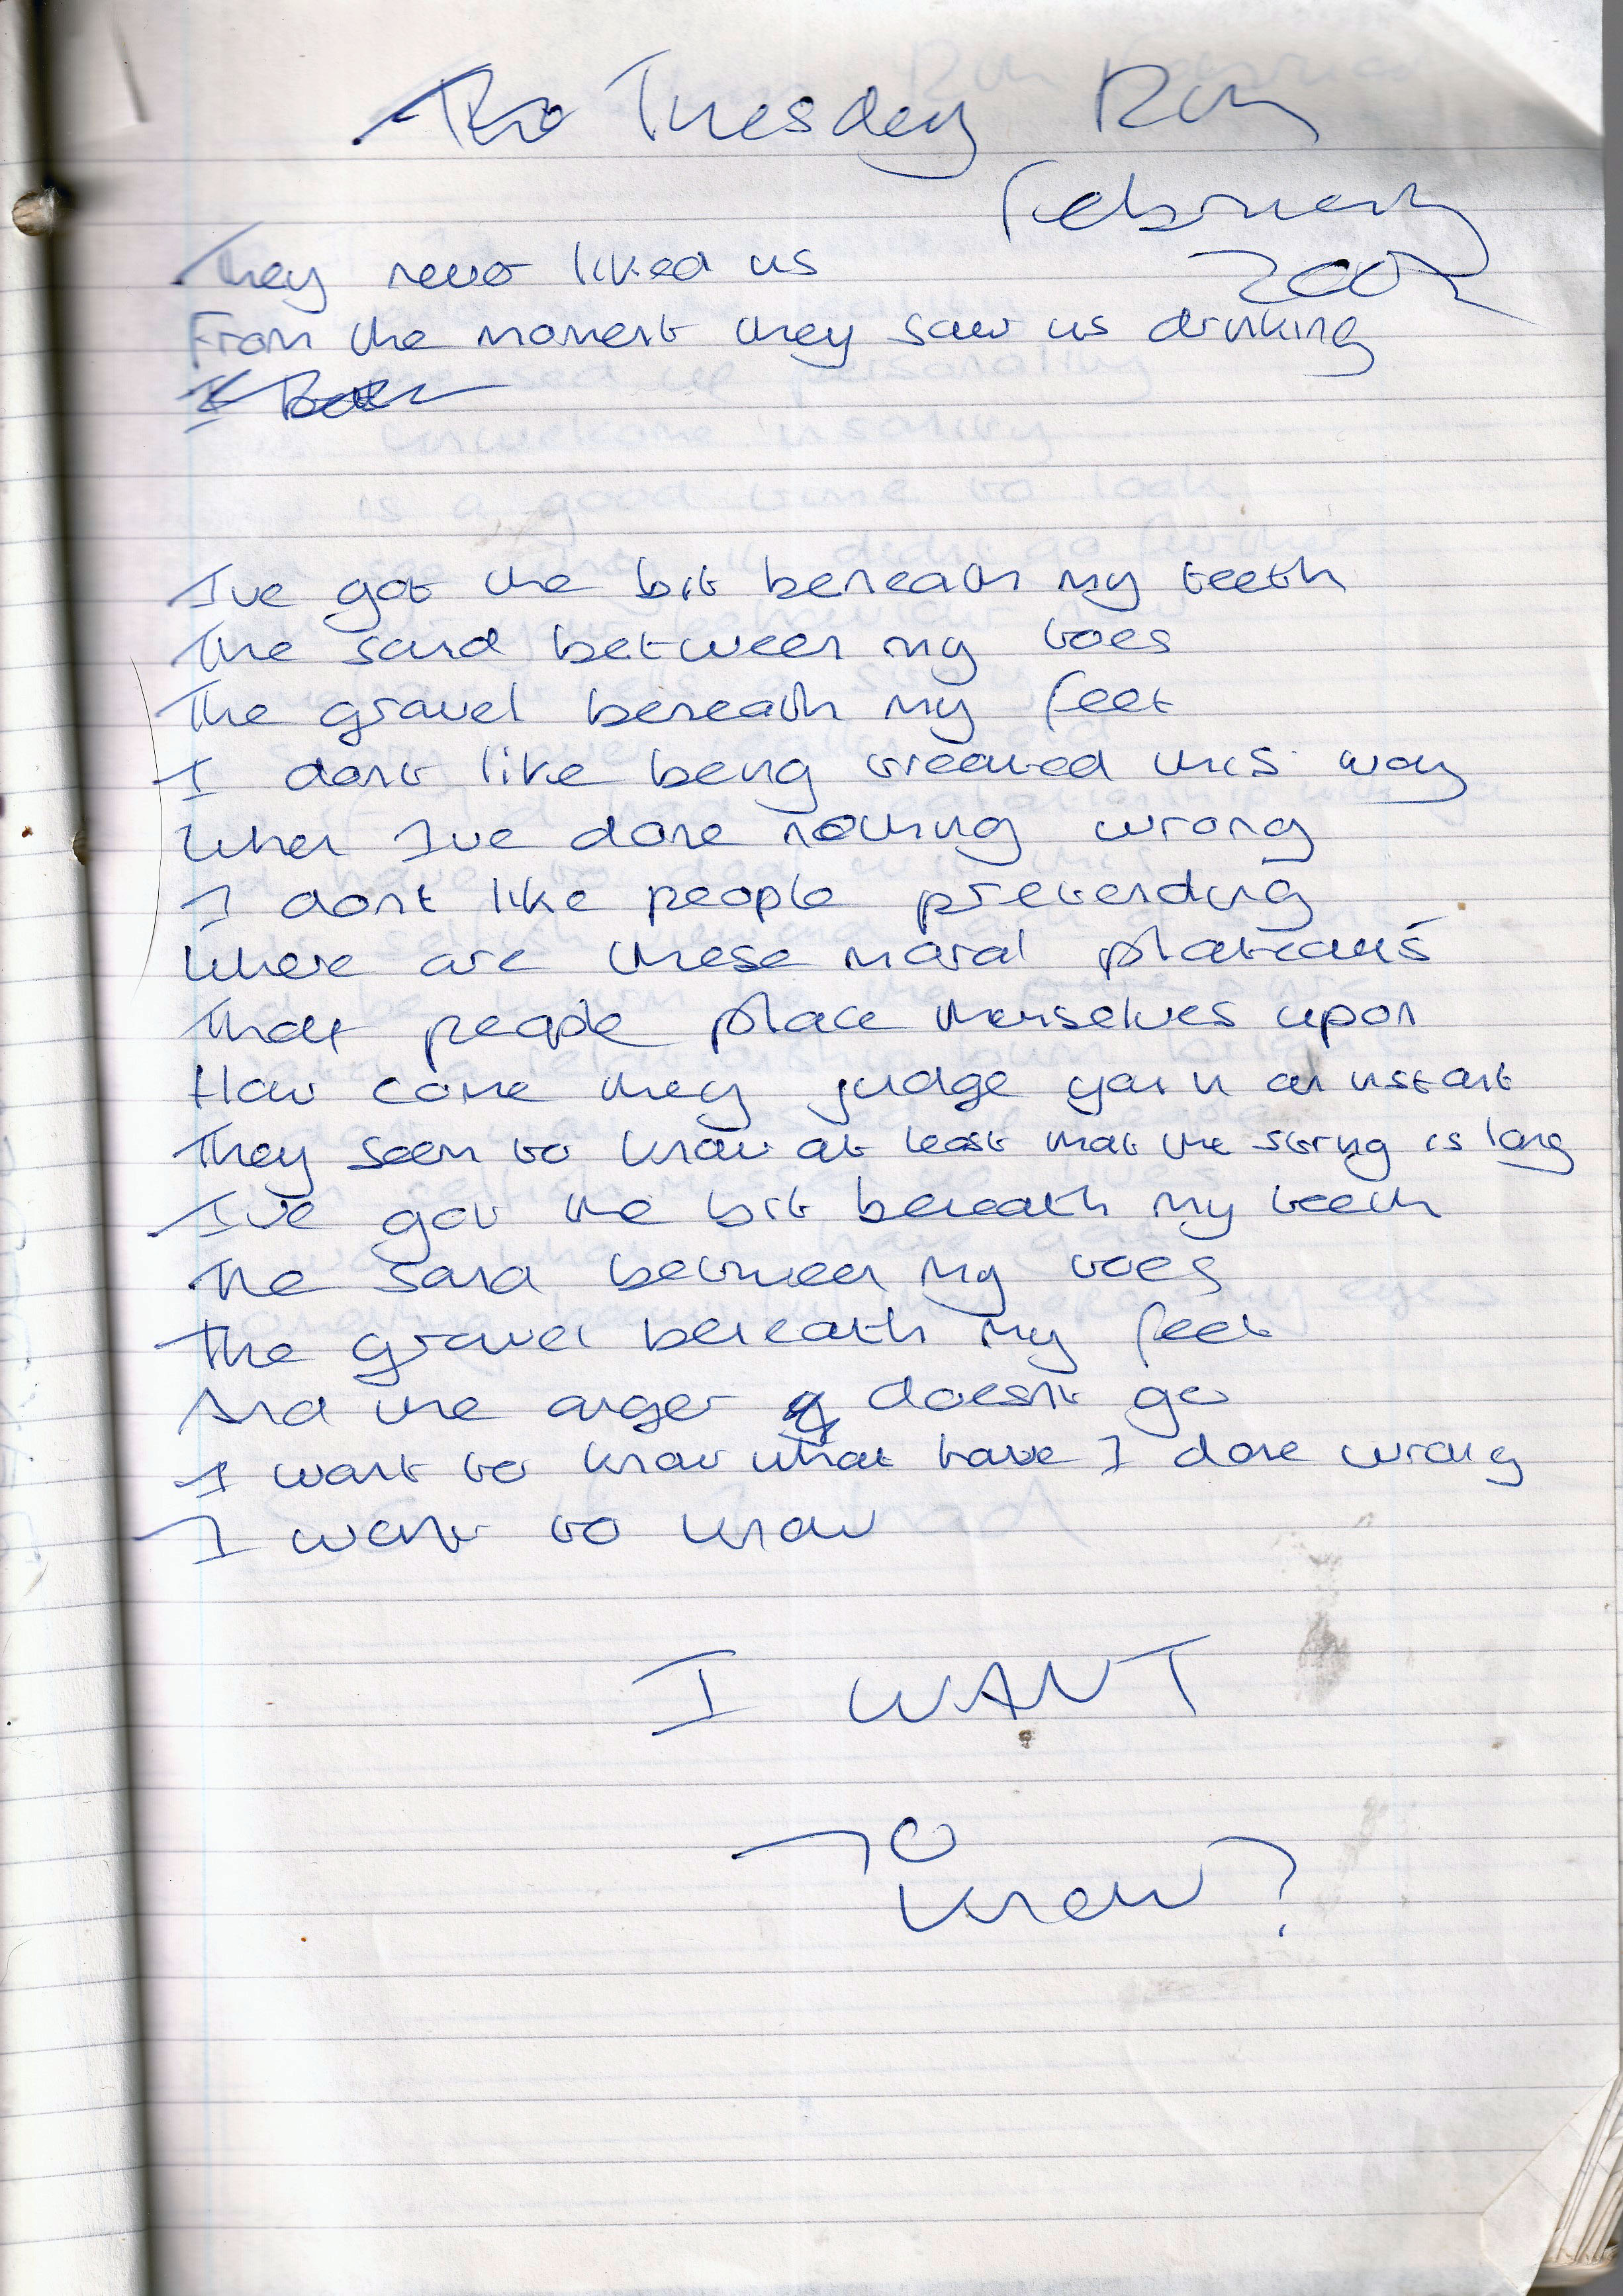 The Tuesday Run
February
2002
They never liked us
From the moment they saw us drinking
I've got the bit beneath my teeth
The sand between my toes
The gravel beneath my feet
I dont like being treated this way
When I've done nothing wrong
I dont like people pretending
Where are these moral plateaus
That people place themselves upon
How come they judge you in an instant
They seem to know at least that the string is long
I've got the bit beneath my teeth
The sand between my toes
The gravel beneath my feet
And the anger doesnt go
I want to know what have I done wrong
I want to know
I WANT
TO
know?